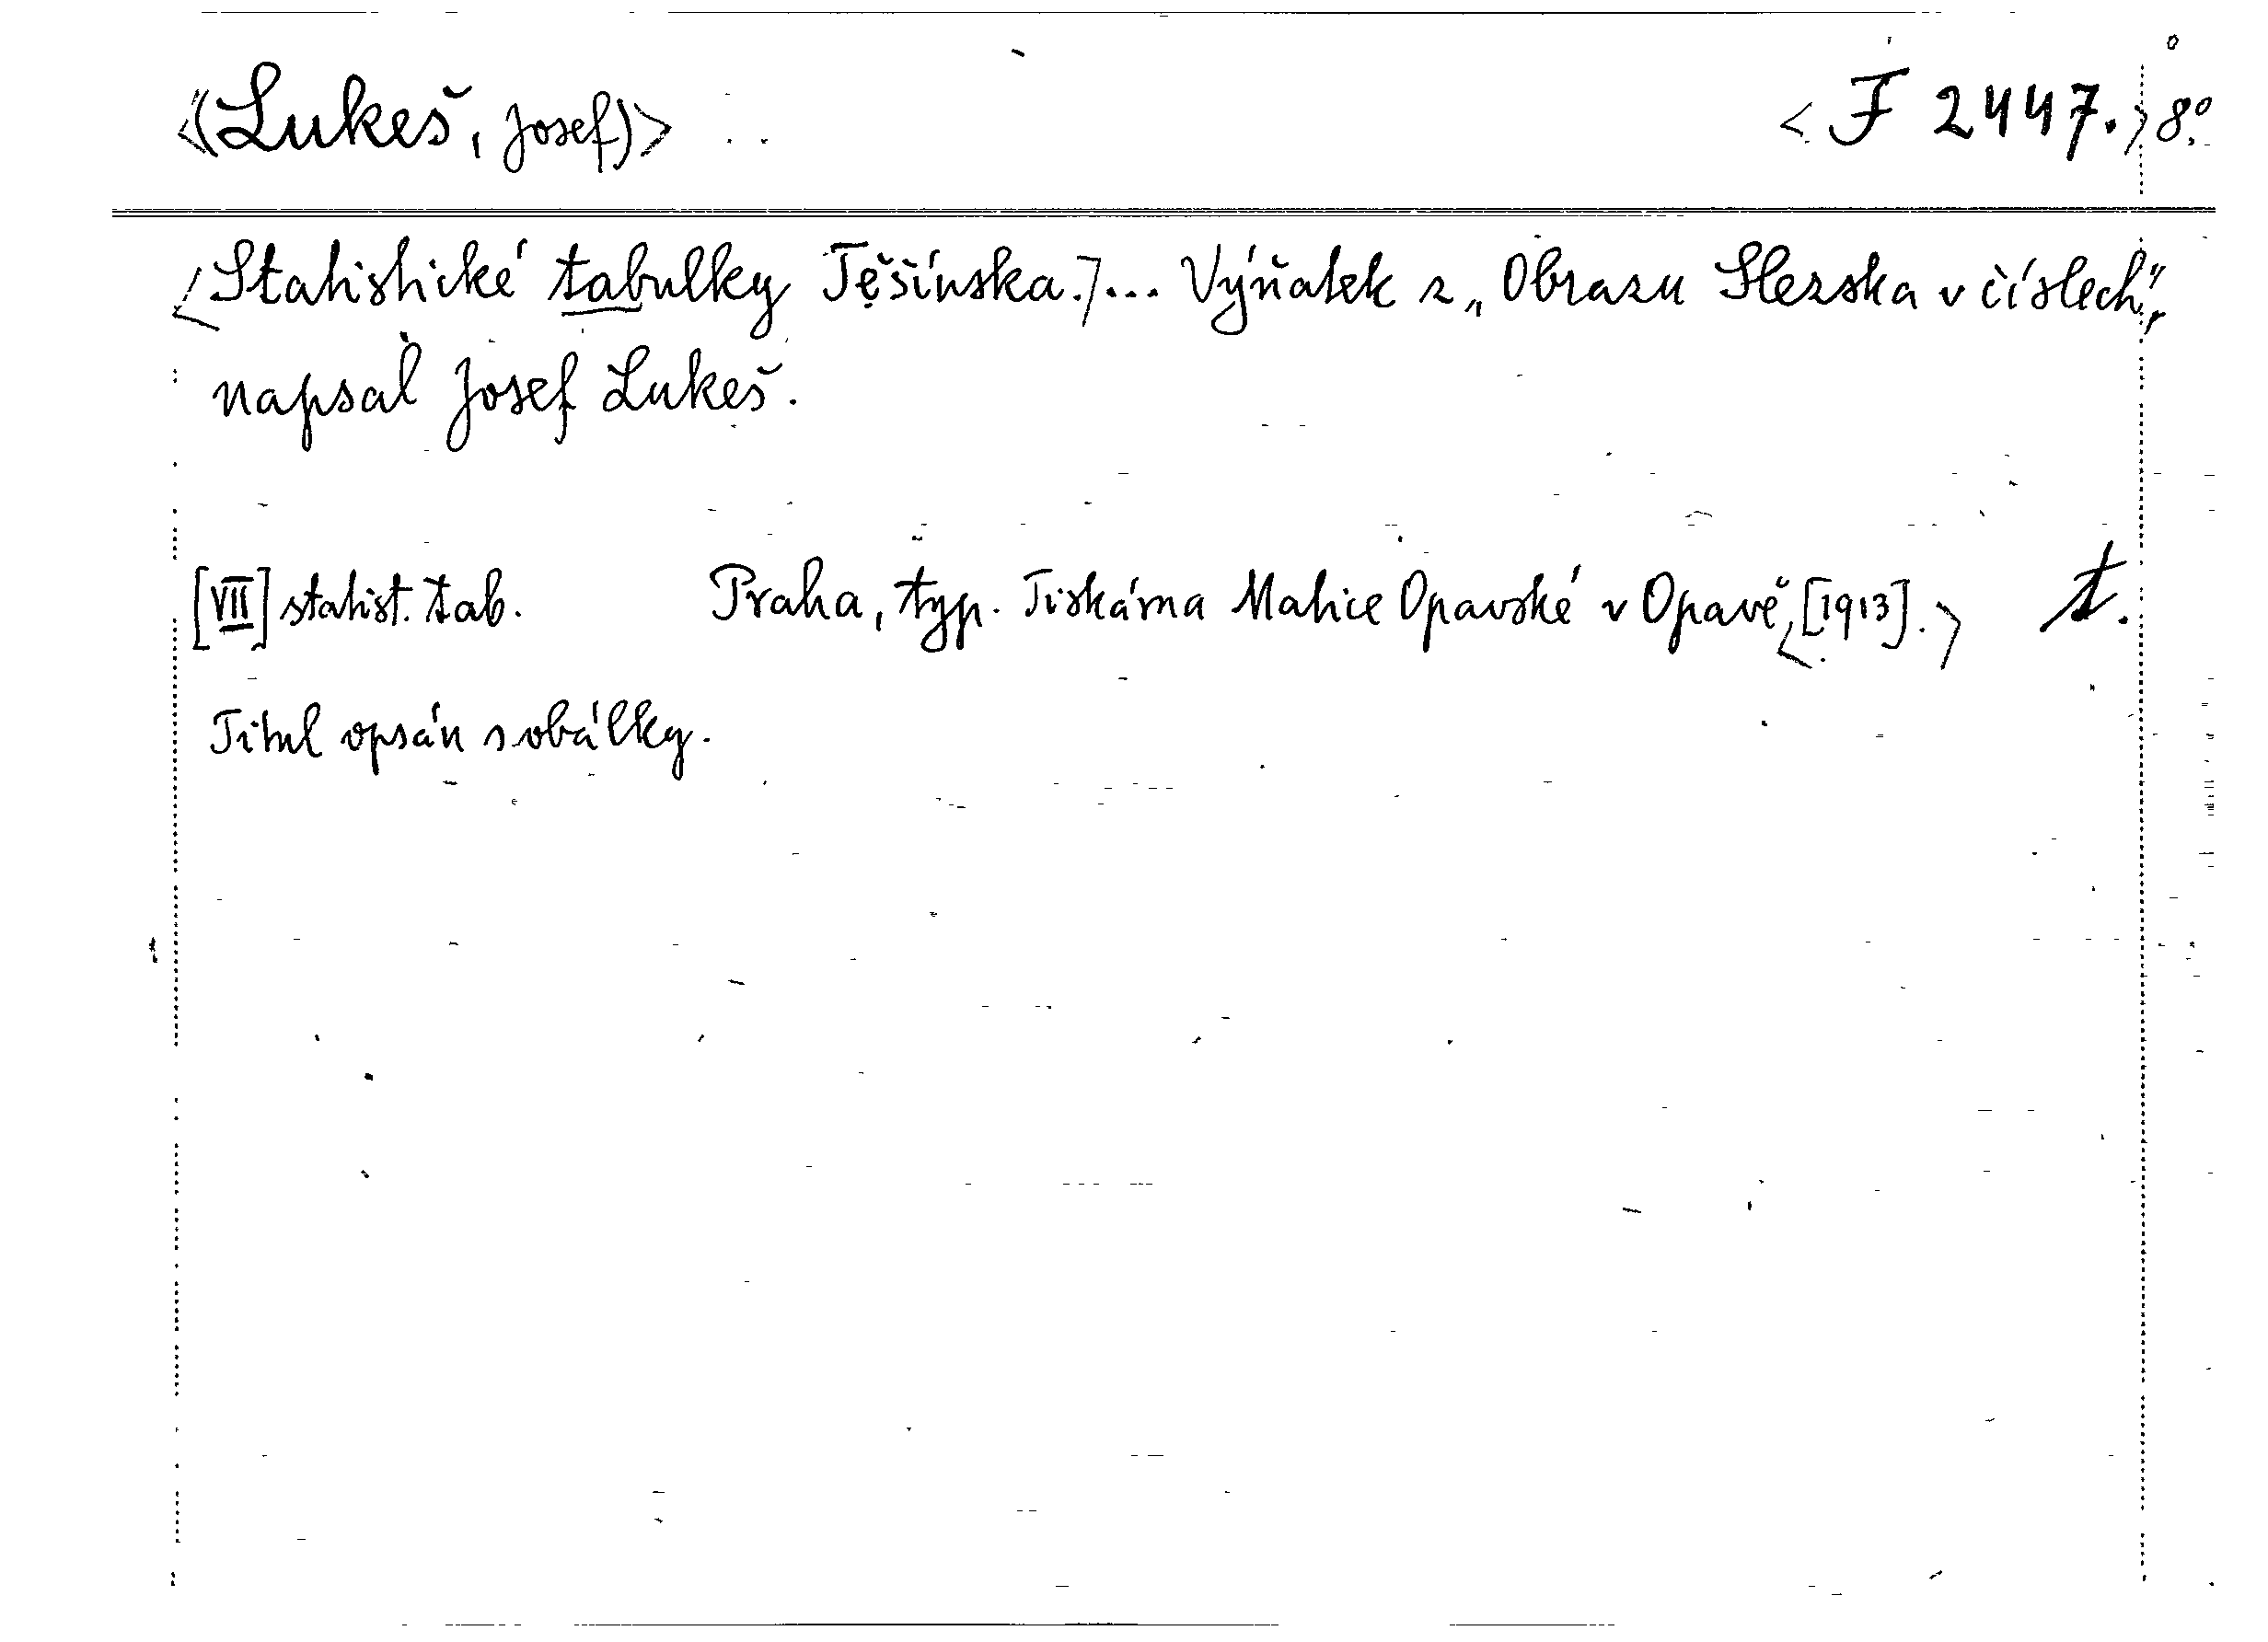 <(Lukeš, Josef)> <F 2447.> 8°.
<Statistické tabulky Těšínska.>... Výňatek z „Obrazu Slezska v číslech“,
napsal Josef Lukeš.
[VII] statist. tab. Praha, typ. Tiskárna Matice Opavské v Opavě, <[1913].> t.
Titul opsán s obálky.